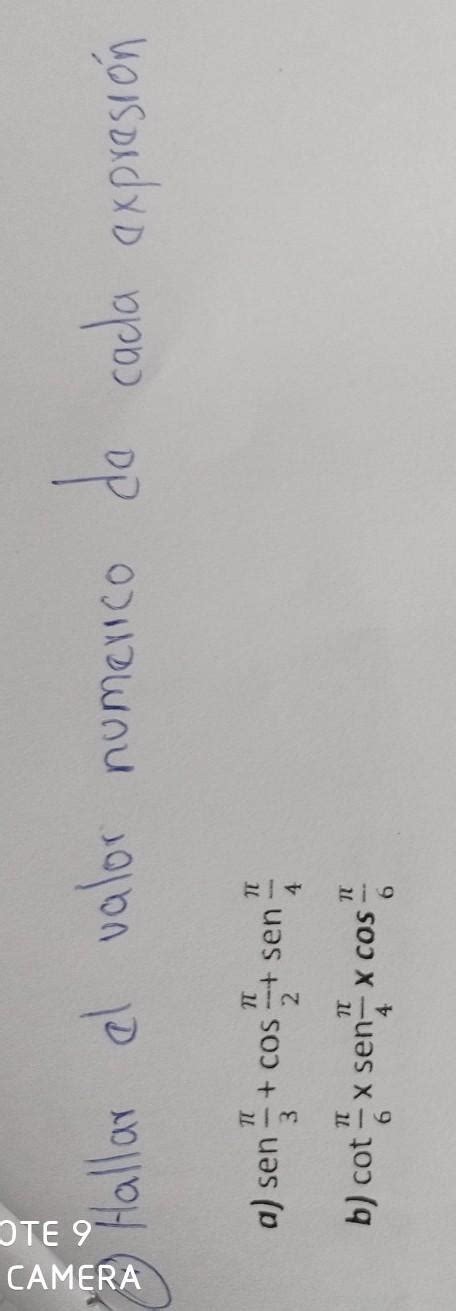 Hallar el valor numerico de cada expresión
a) sen π/3 + cos π/2 + sen π/4
b) cot π/6 x sen π/4 x cos π/6
OTE 9
CAMERA